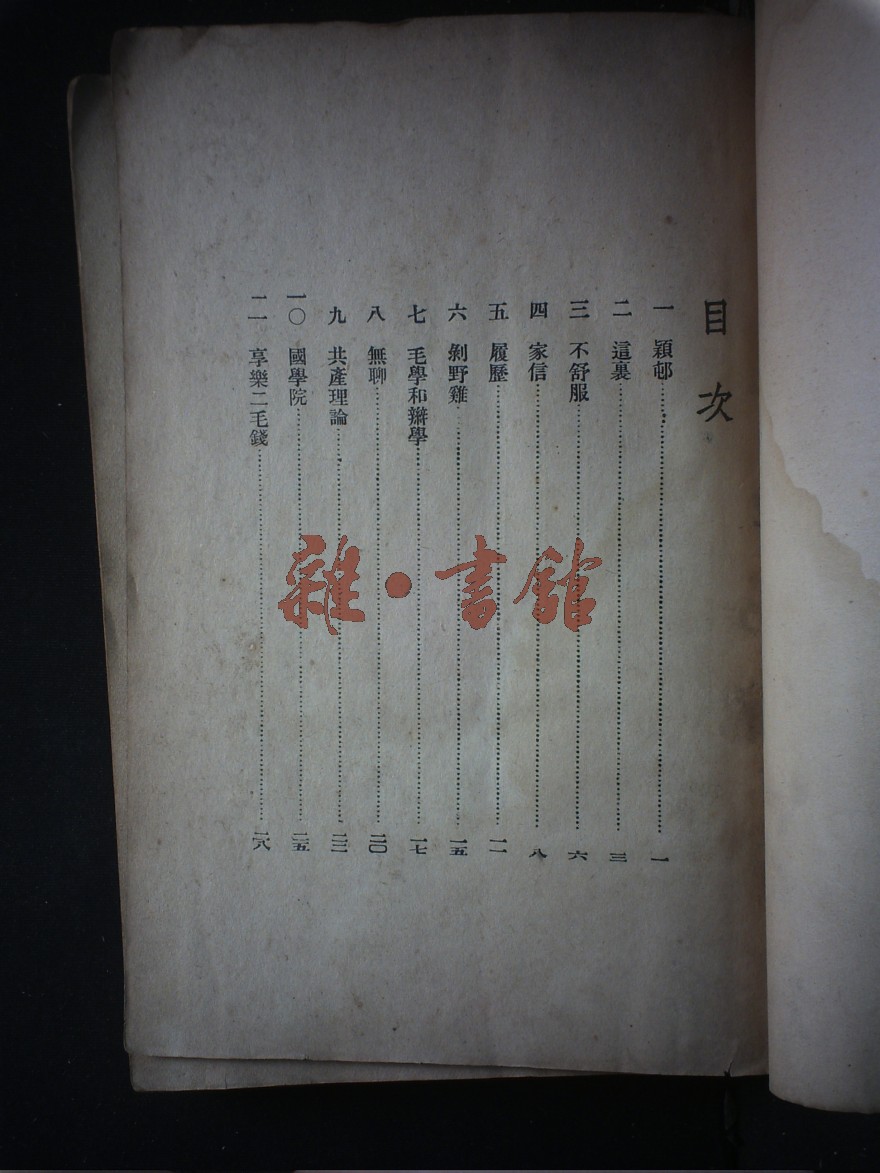 目次
一 穎邨……一
二 這裏……三
三 不舒服……六
四 家信……八
五 履歷……一一
六 剝野雞……一五
七 毛學和辮學……一七
八 無聊……二〇
九 共產理論……二三
一〇 國學院……二五
一一 享樂二毛錢……二八
雜·書館